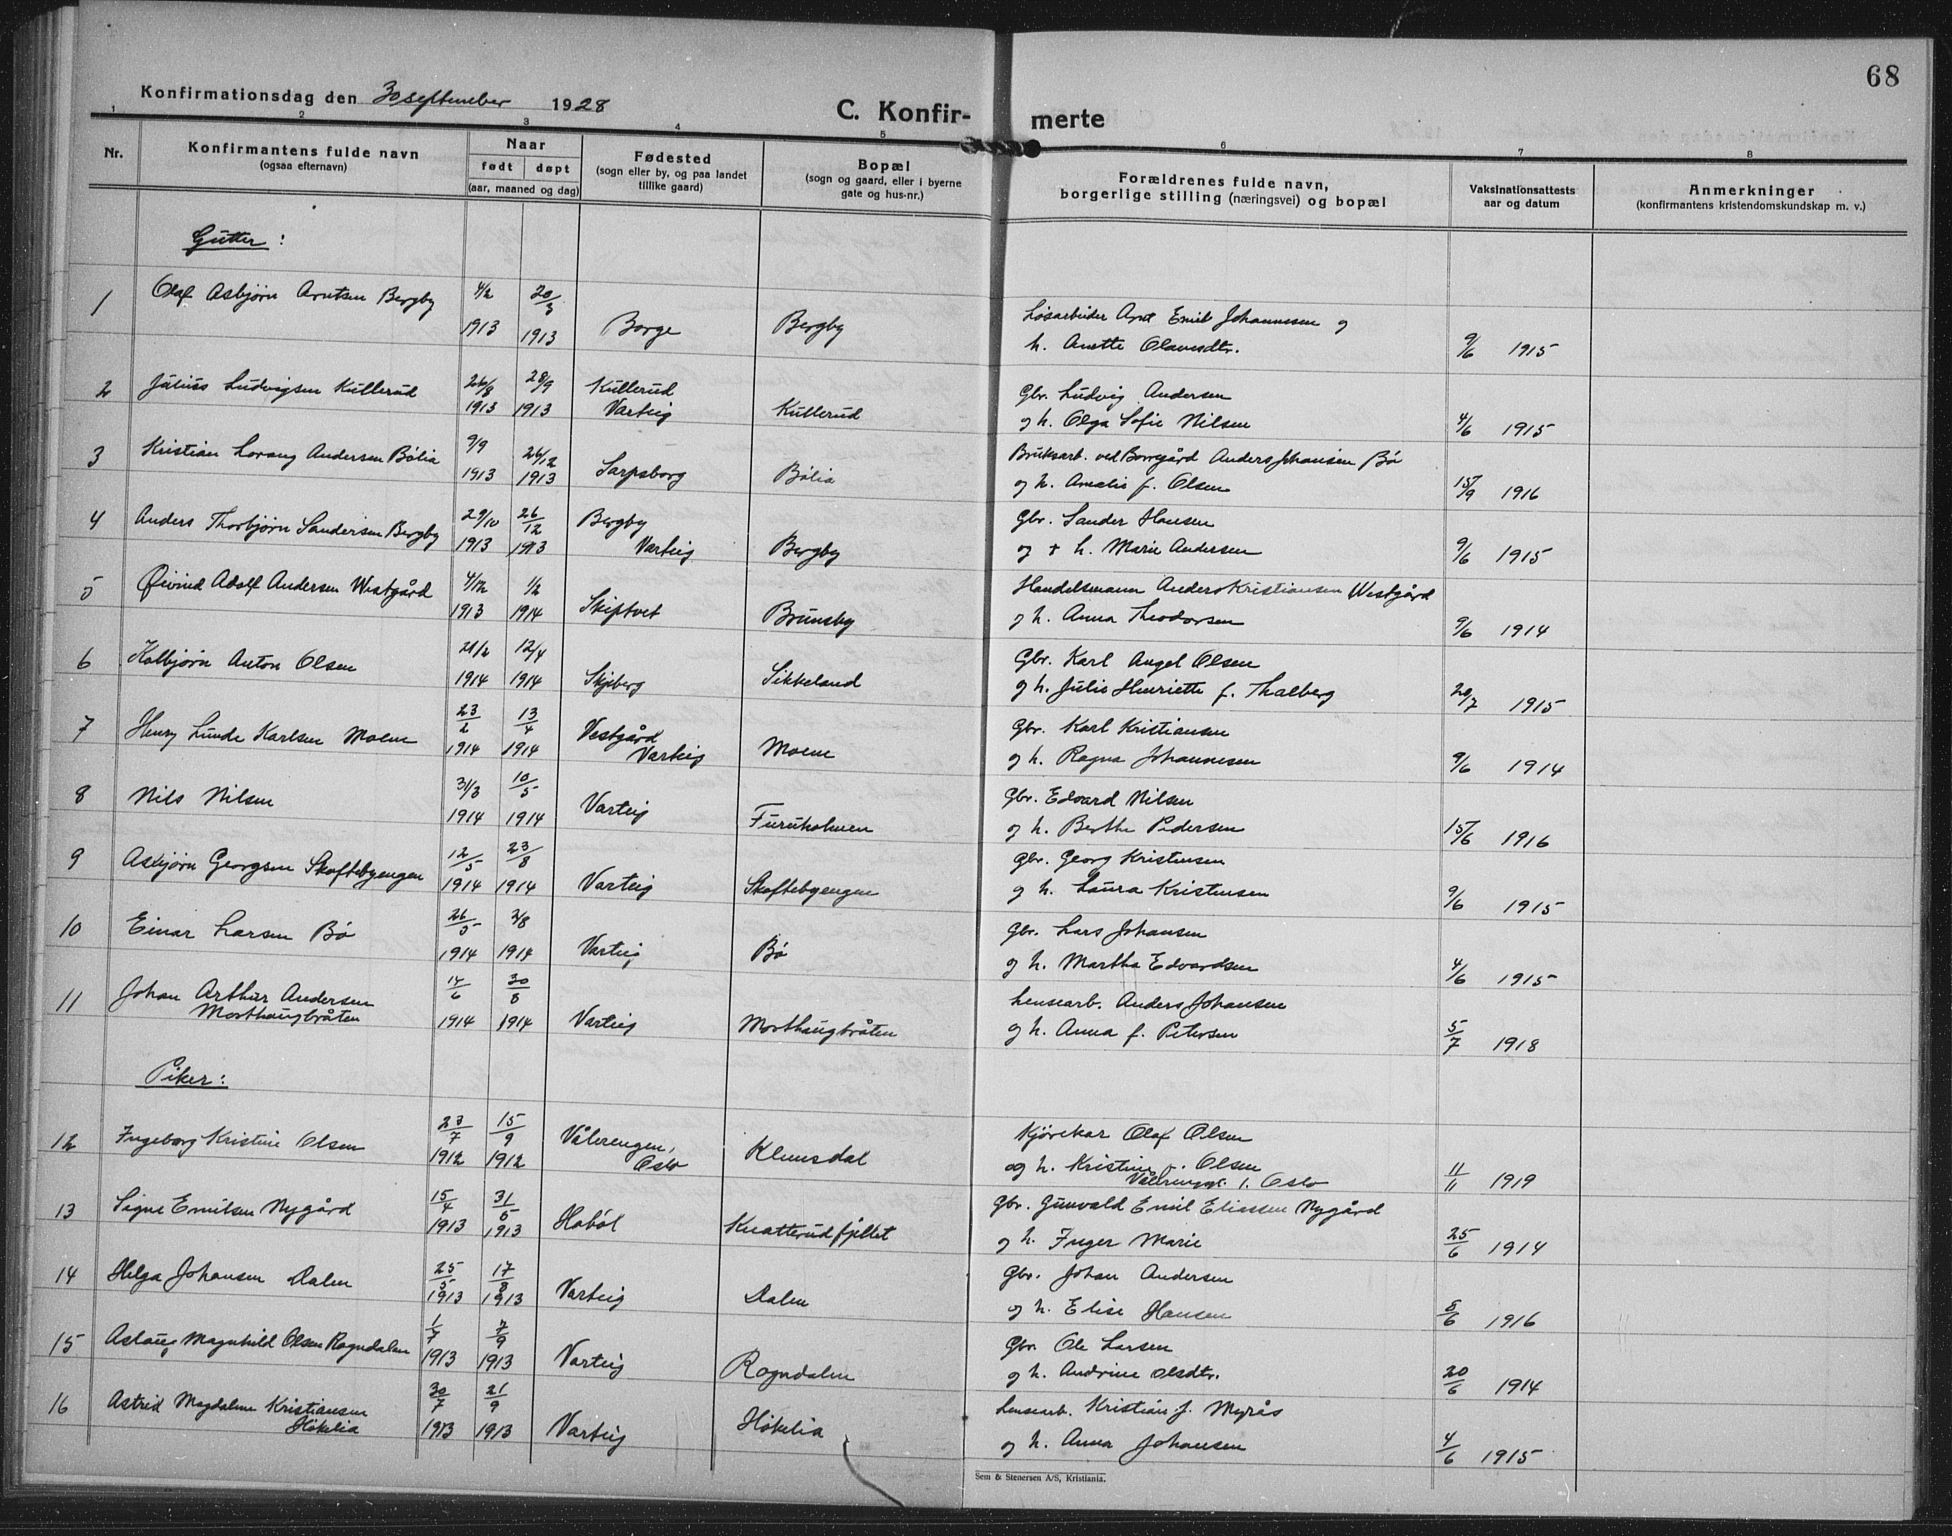 68
Konfirmationsdag den 30 september 1928
C. Konfir- merte
1 2 3 4 5 6 7 8
Nr. Konfirmantens fulde navn (ogsaa efternavn) Naar født døpt (aar, maaned og dag) Fødested (sogn eller by, og paa landet tillike gaard) Bopæl (sogn og gaard, eller i byerne gate og hus-nr.) Forældrenes fulde navn, borgerlige stilling (næringsvei) og bopæl Vaksinationsattests aar og datum Anmerkninger (konfirmantens kristendomskundskap m. v.)
Gutter:
1 Olaf Asbjørn Arntsen Bergby 4/2 20/3 Løsarbeider Arnt Emil Johannesen og
1913 1913 Borge Bergby h. Anette Olavesdtr. 9/6 1915
2 Julius Ludvigsen Kullerud 26/8 28/9 Kullerud Gbr. Ludvig Andersen
1913 1913 Varteig Kullerud og h. Olga Sofie Nilsen 4/6 1915
3 Kristian Lorang Andersen Bølia 9/9 26/12 Bruksarb. ved Borregård Anders Johansen Bø
1913 1913 Sarpsborg Bølia og h. Amalie f. Olsen 15/9 1916
4 Anders Thorbjørn Sandersen Bergby 29/10 26/12 Bergby Gbr. Sander Hansen
1913 1913 Varteig Bergby og + h. Marie Andersen 9/6 1915
5 Øivind Adolf Andersen Westgård 4/12 1/2 Handelsmann Anders Kristiansen Westgård
1913 1914 Skiptvet Brunsby og h. Anna Theodorsen 9/6 1914
6 Kolbjørn Anton Olsen 21/2 12/4 Gbr. Karl Angel Olsen
1914 1914 Skjeberg Sikkeland og h. Julie Henriette f. Thalberg 20/7 1915
7 Henry Lunde Karlsen Moene 23/2 13/4 Vestgård Gbr. Karl Kristiansen
1914 1914 Varteig Moene og h. Ragna Johannesen 9/6 1914
8 Nils Nilsen 31/3 10/5 Gbr. Edvard Nilsen
1914 1914 Varteig Furuholmen og h. Berthe Pedersen 15/6 1916
9 Asbjørn Georgsen Skoftebyengen 12/5 23/8 Gbr. Georg Kristensen
1914 1914 Varteig Skoftebyengen og h. Laura Kristensen 9/6 1915
10 Einar Larsen Bø 26/5 3/8 Gbr. Lars Johansen
1914 1914 Varteig Bø og h. Martha Edvardsen 4/6 1915
11 Johan Arthur Andersen 14/6 30/8 Lensearb. Anders Johansen
Morthaugbråten 1914 1914 Varteig Morthaugbråten og h. Anna f. Petersen 5/7 1918
Piker:
12 Ingeborg Kristine Olsen 23/7 15/9 Vålerengen, Kjørekar Olaf Olsen
1912 1912 Oslo Klemsdal og h. Kristine Olsen 11/11 1919
Oslo
13 Signe Emilsen Nygård 15/4 31/5 Gbr. Gunvald Emil Eliassen Nygård
1913 1913 Hobøl Knatterudfjellet og h. Inger Marie 25/6 1914
14 Helga Johansen Dalen 25/5 17/8 Gbr. Johan Andersen
1913 1913 Varteig Dalen og h. Elise Hansen 8/6 1916
15 Aslaug Magnhild Olsen Rogndalen 1/7 7/9 Gbr. Ole Larsen
1913 1913 Varteig Rogndalen og h. Andrine Olsdtr. 20/6 1914
16 Astrid Magdalene Kristiansen 30/7 21/9 Lensearb. Kristian J. Myrås
Høkelia 1913 1913 Varteig Høkelia og h. Anna Johansen 4/6 1915
Sem & Stenersen A/S, Kristiania.